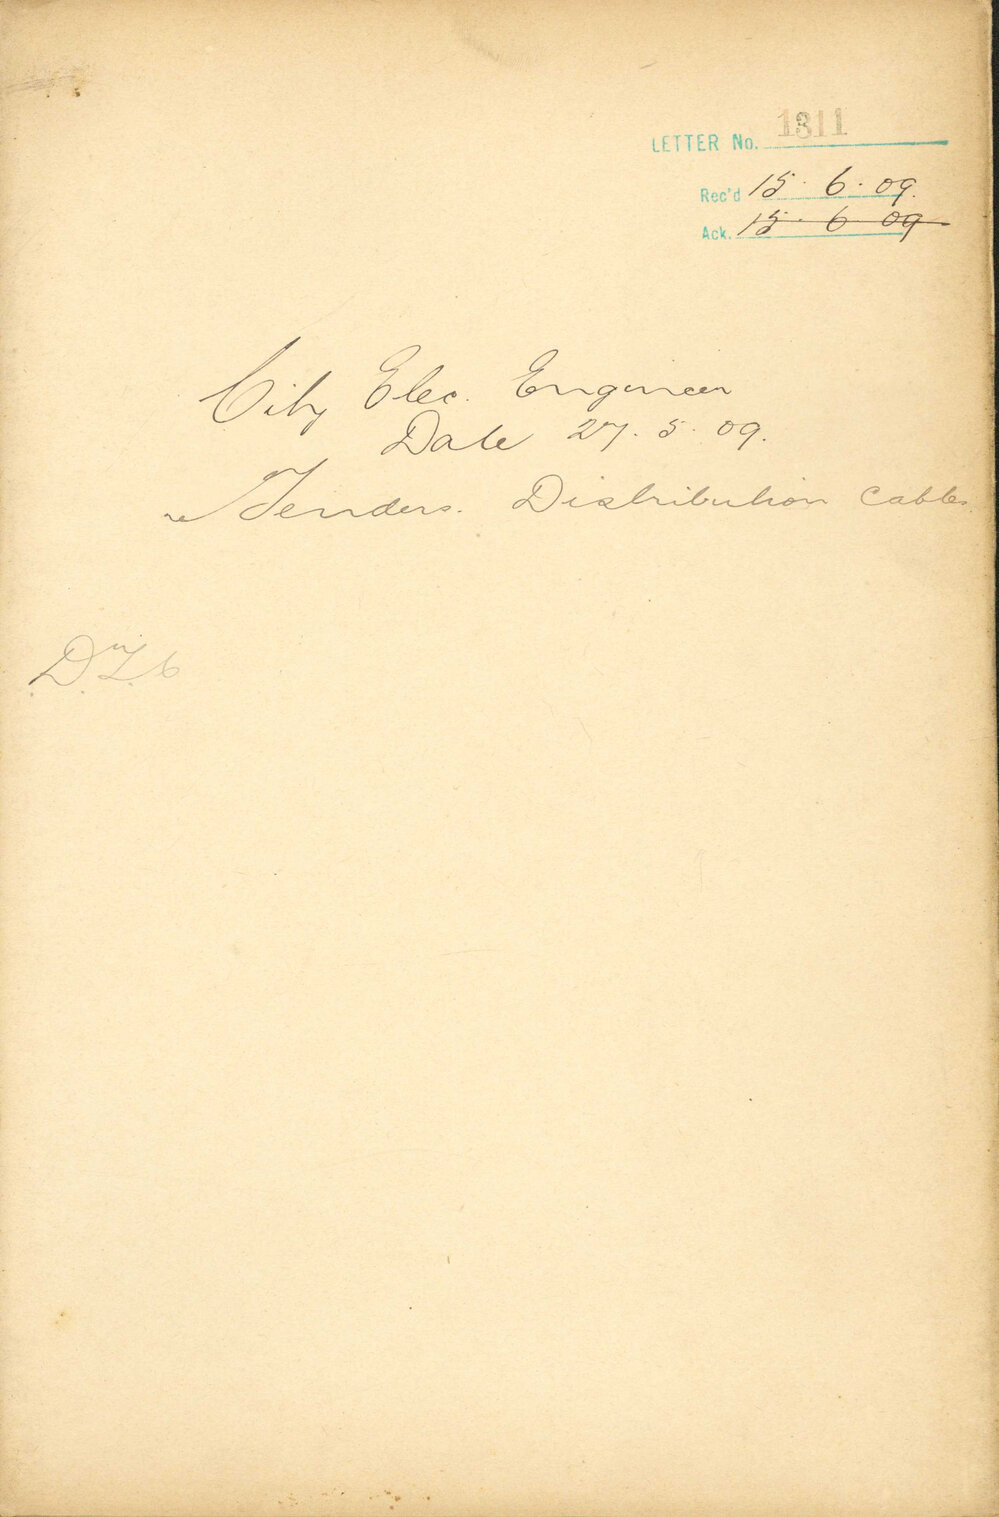 LETTER No. 1311
Rec'd 15. 6. 09.
Ack. 15. 6 09
City Elec. Engineer
Date 27. 5. 09.
re Tenders. Distribution Cables